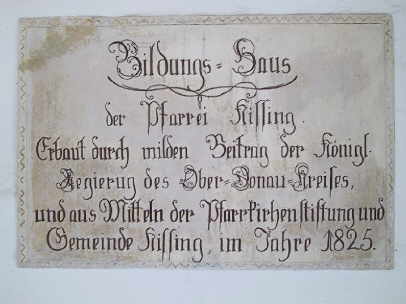 Bildungs-Haus
der Pfarrei Kissing.
Erbaut durch milden Beitrag der Königl.
Regierug des Ober-Donau-Kreises,
und aus Mitteln der Pfarrkirchenstiftung und
Gemeinde Kissing, im Jahre 1825.